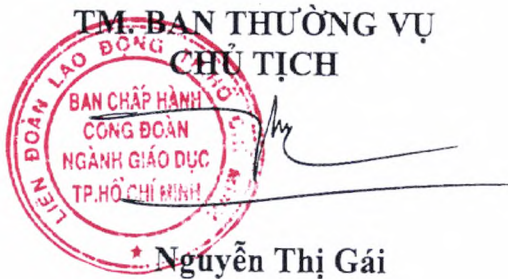 TM. BAN THƯỜNG VỤ
CHỦ TỊCH
LIÊN ĐOÀN LAO ĐỘNG TP.HỒ CHÍ MINH
BAN CHẤP HÀNH
CÔNG ĐOÀN
NGÀNH GIÁO DỤC
TP.HỒ CHÍ MINH
Nguyễn Thị Gái